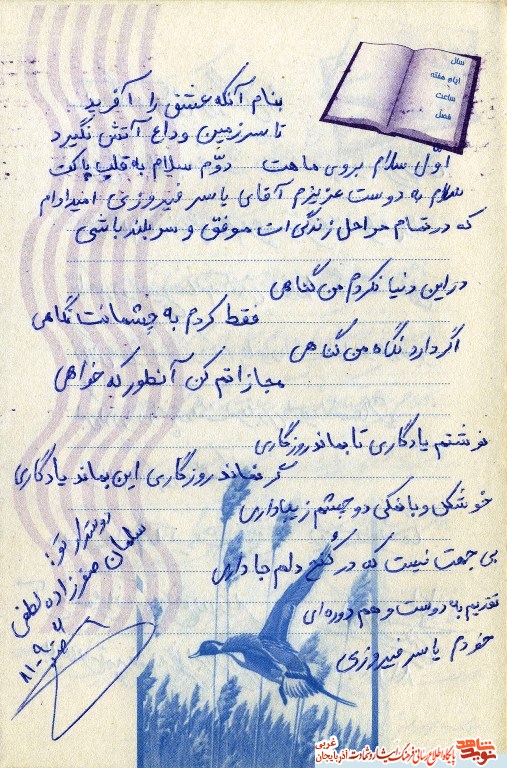 سال
ایام هفته
ساعت
فصل
بنام آنکه عشق را آفرید
تا سرزمین وداع آتش نگیرد
اوّل سلام بروی ماهت دوّم سلام به قلب پاکت
سلام به دوست عزیزم آقای یاسر فیروزی امیدوارم
که در تمام مراحل زندگی ات موفق و سربلند باشی
در این دنیا نکردم من گناهی
فقط کردم به چشمانت نگاهی
اگر دارد نگاه من گناهی
مجازاتم کن آنطور که خواهی
نوشتم یادگاری تا بماند روزگاری
گر نماند روزگاری این بماند یادگاری
خوشگل و بانمکی دو چشم زیبا داری
بی جهت نیست که در کُنج دلم جا داری
تقدیم به دوست و هم دوره ای
خودم یاسر فیروزی
دوستدار تو:
سلمان صفرزاده لطفی
۸۱-۹-۲
نوید شاهد
پایگاه اطلاع رسانی فرهنگ ایثار و شهادت آذربایجان غربی